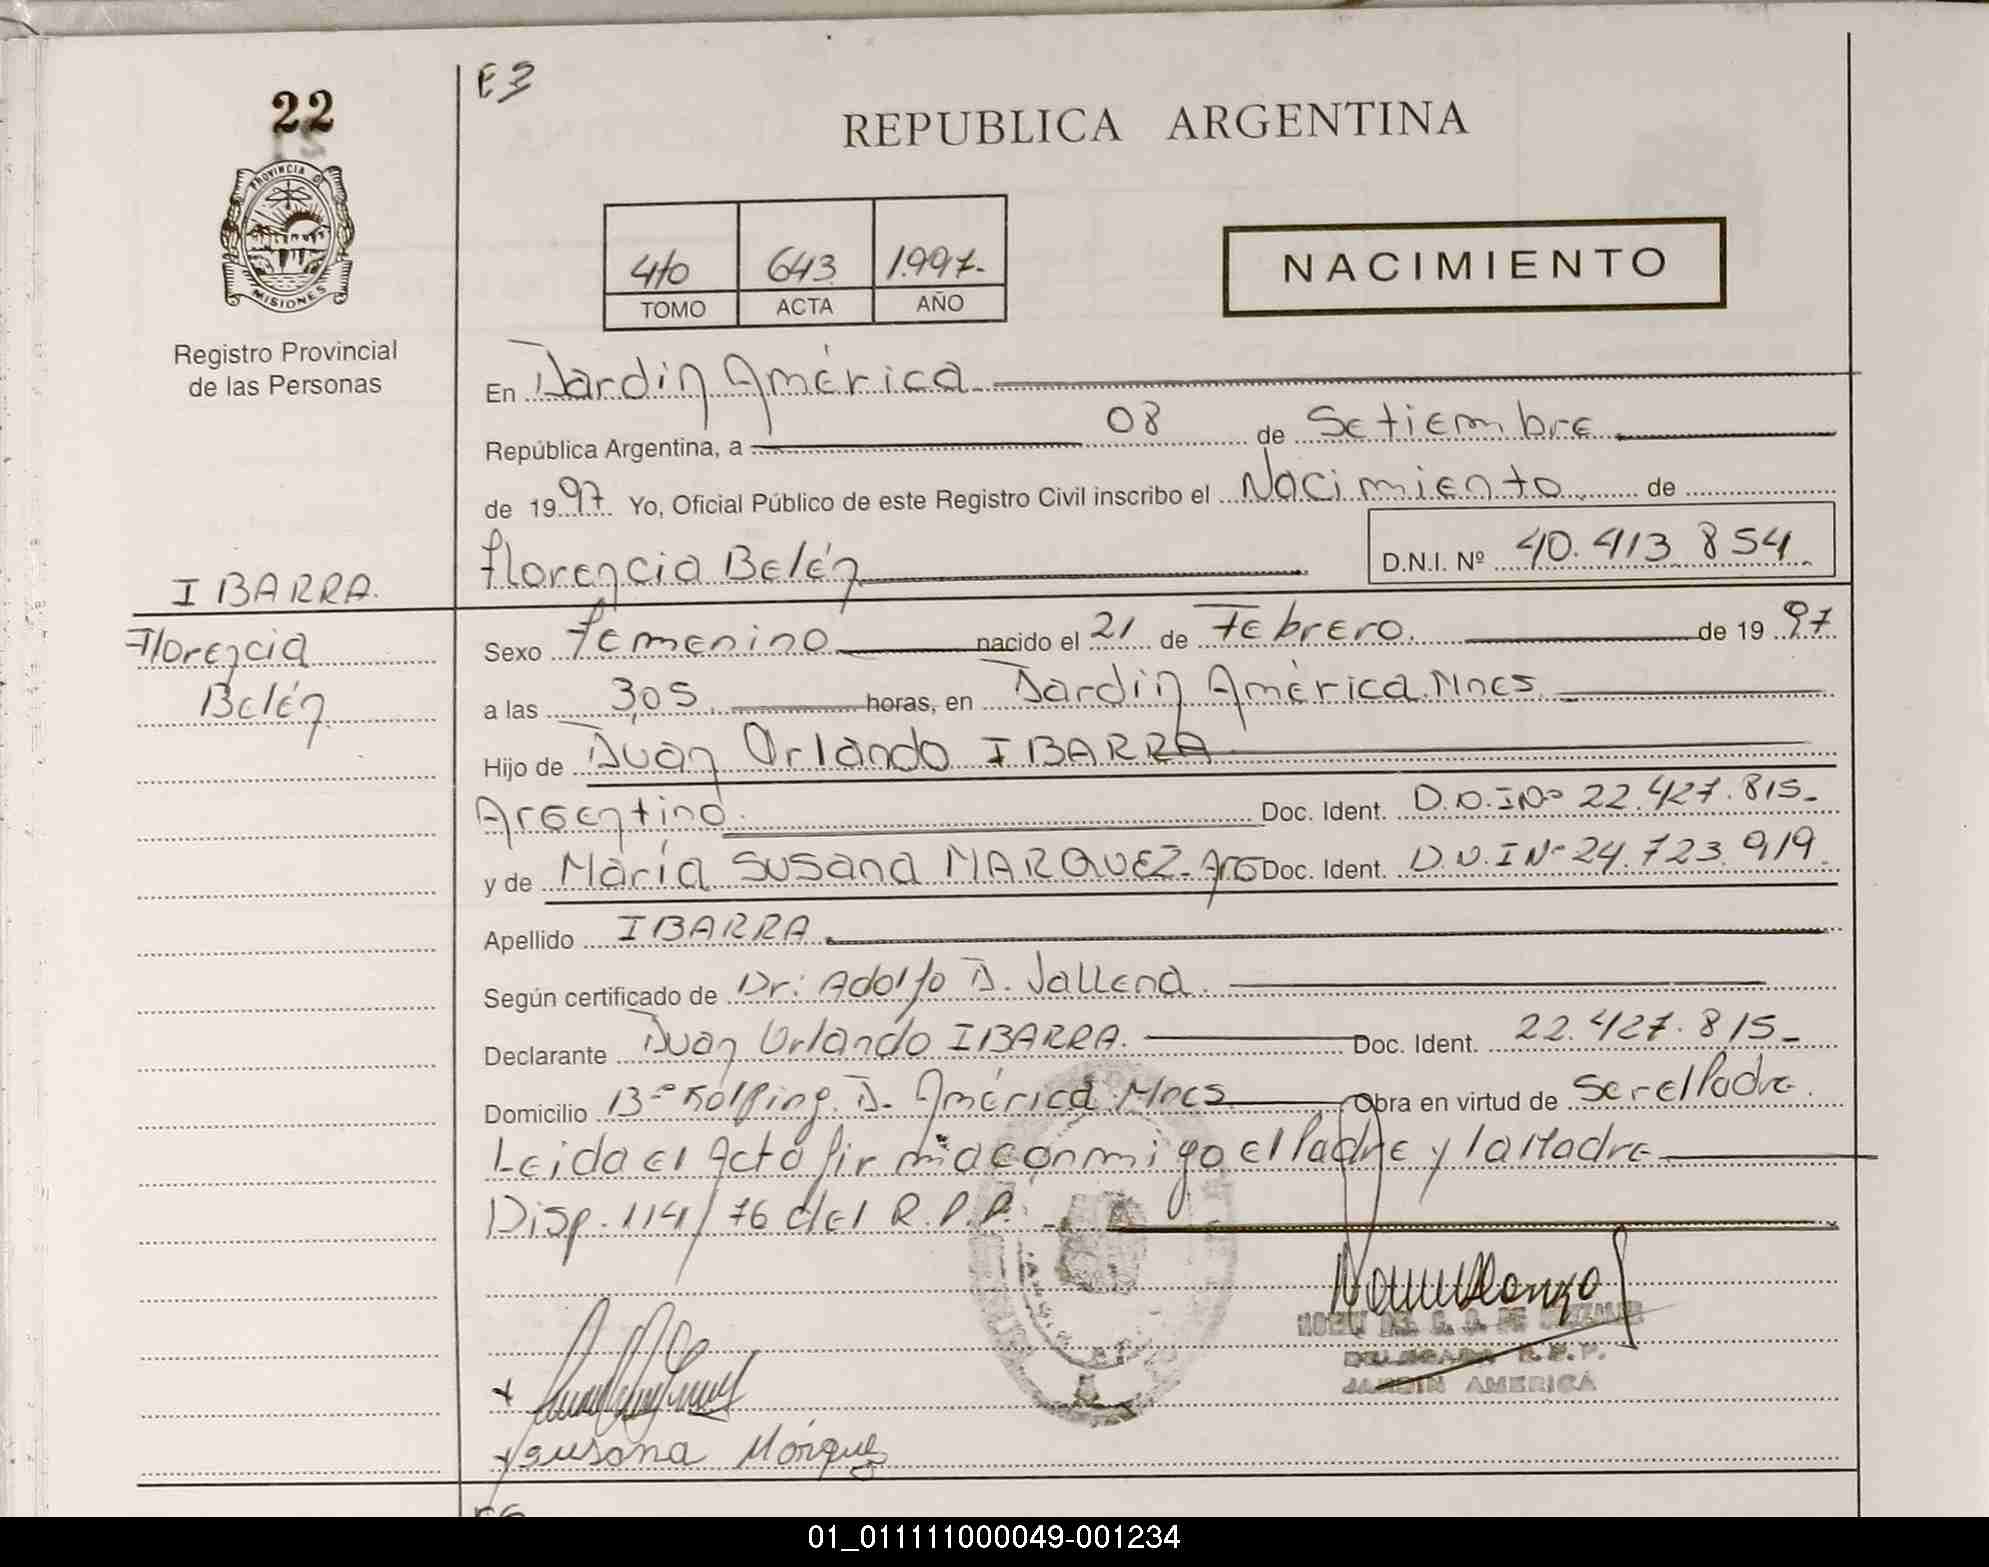 22
E3
REPUBLICA ARGENTINA
PROVINCIA DE
MISIONES
4to 643 1.997.-
TOMO ACTA AÑO
NACIMIENTO
Registro Provincial
de las Personas
En Jardín América
República Argentina, a 08 de Setiembre
de 1997 Yo, Oficial Público de este Registro Civil inscribo el Nacimiento de
Florencia Belén D.N.I. Nº 40.413 854
IBARRA.
Florencia
Belén
Sexo Femenino nacido el 21 de Febrero. de 1997
a las 3,05 horas, en Jardín América. Mnes
Hijo de Juan Orlando IBARRA
Argentino. Doc. Ident. D.N.I Nº 22.427.815-
y de María Susana MARQUEZ- Arg Doc. Ident. D.N.I Nº 24.723.919.
Apellido IBARRA
Según certificado de Dr: Adolfo J.
Declarante Juan Orlando IBARRA. Doc. Ident. 22.427.815-
Domicilio Bº Kolping. J. América Mnes Obra en virtud de Ser el Padre.
Leida el Acta firma conmigo el Padre y la Madre
Disp. 114/76 del R.P.P.
DELEGADA R.P.P.
JARDIN AMERICA
x
x Susana Márquez
01_011111000049-001234